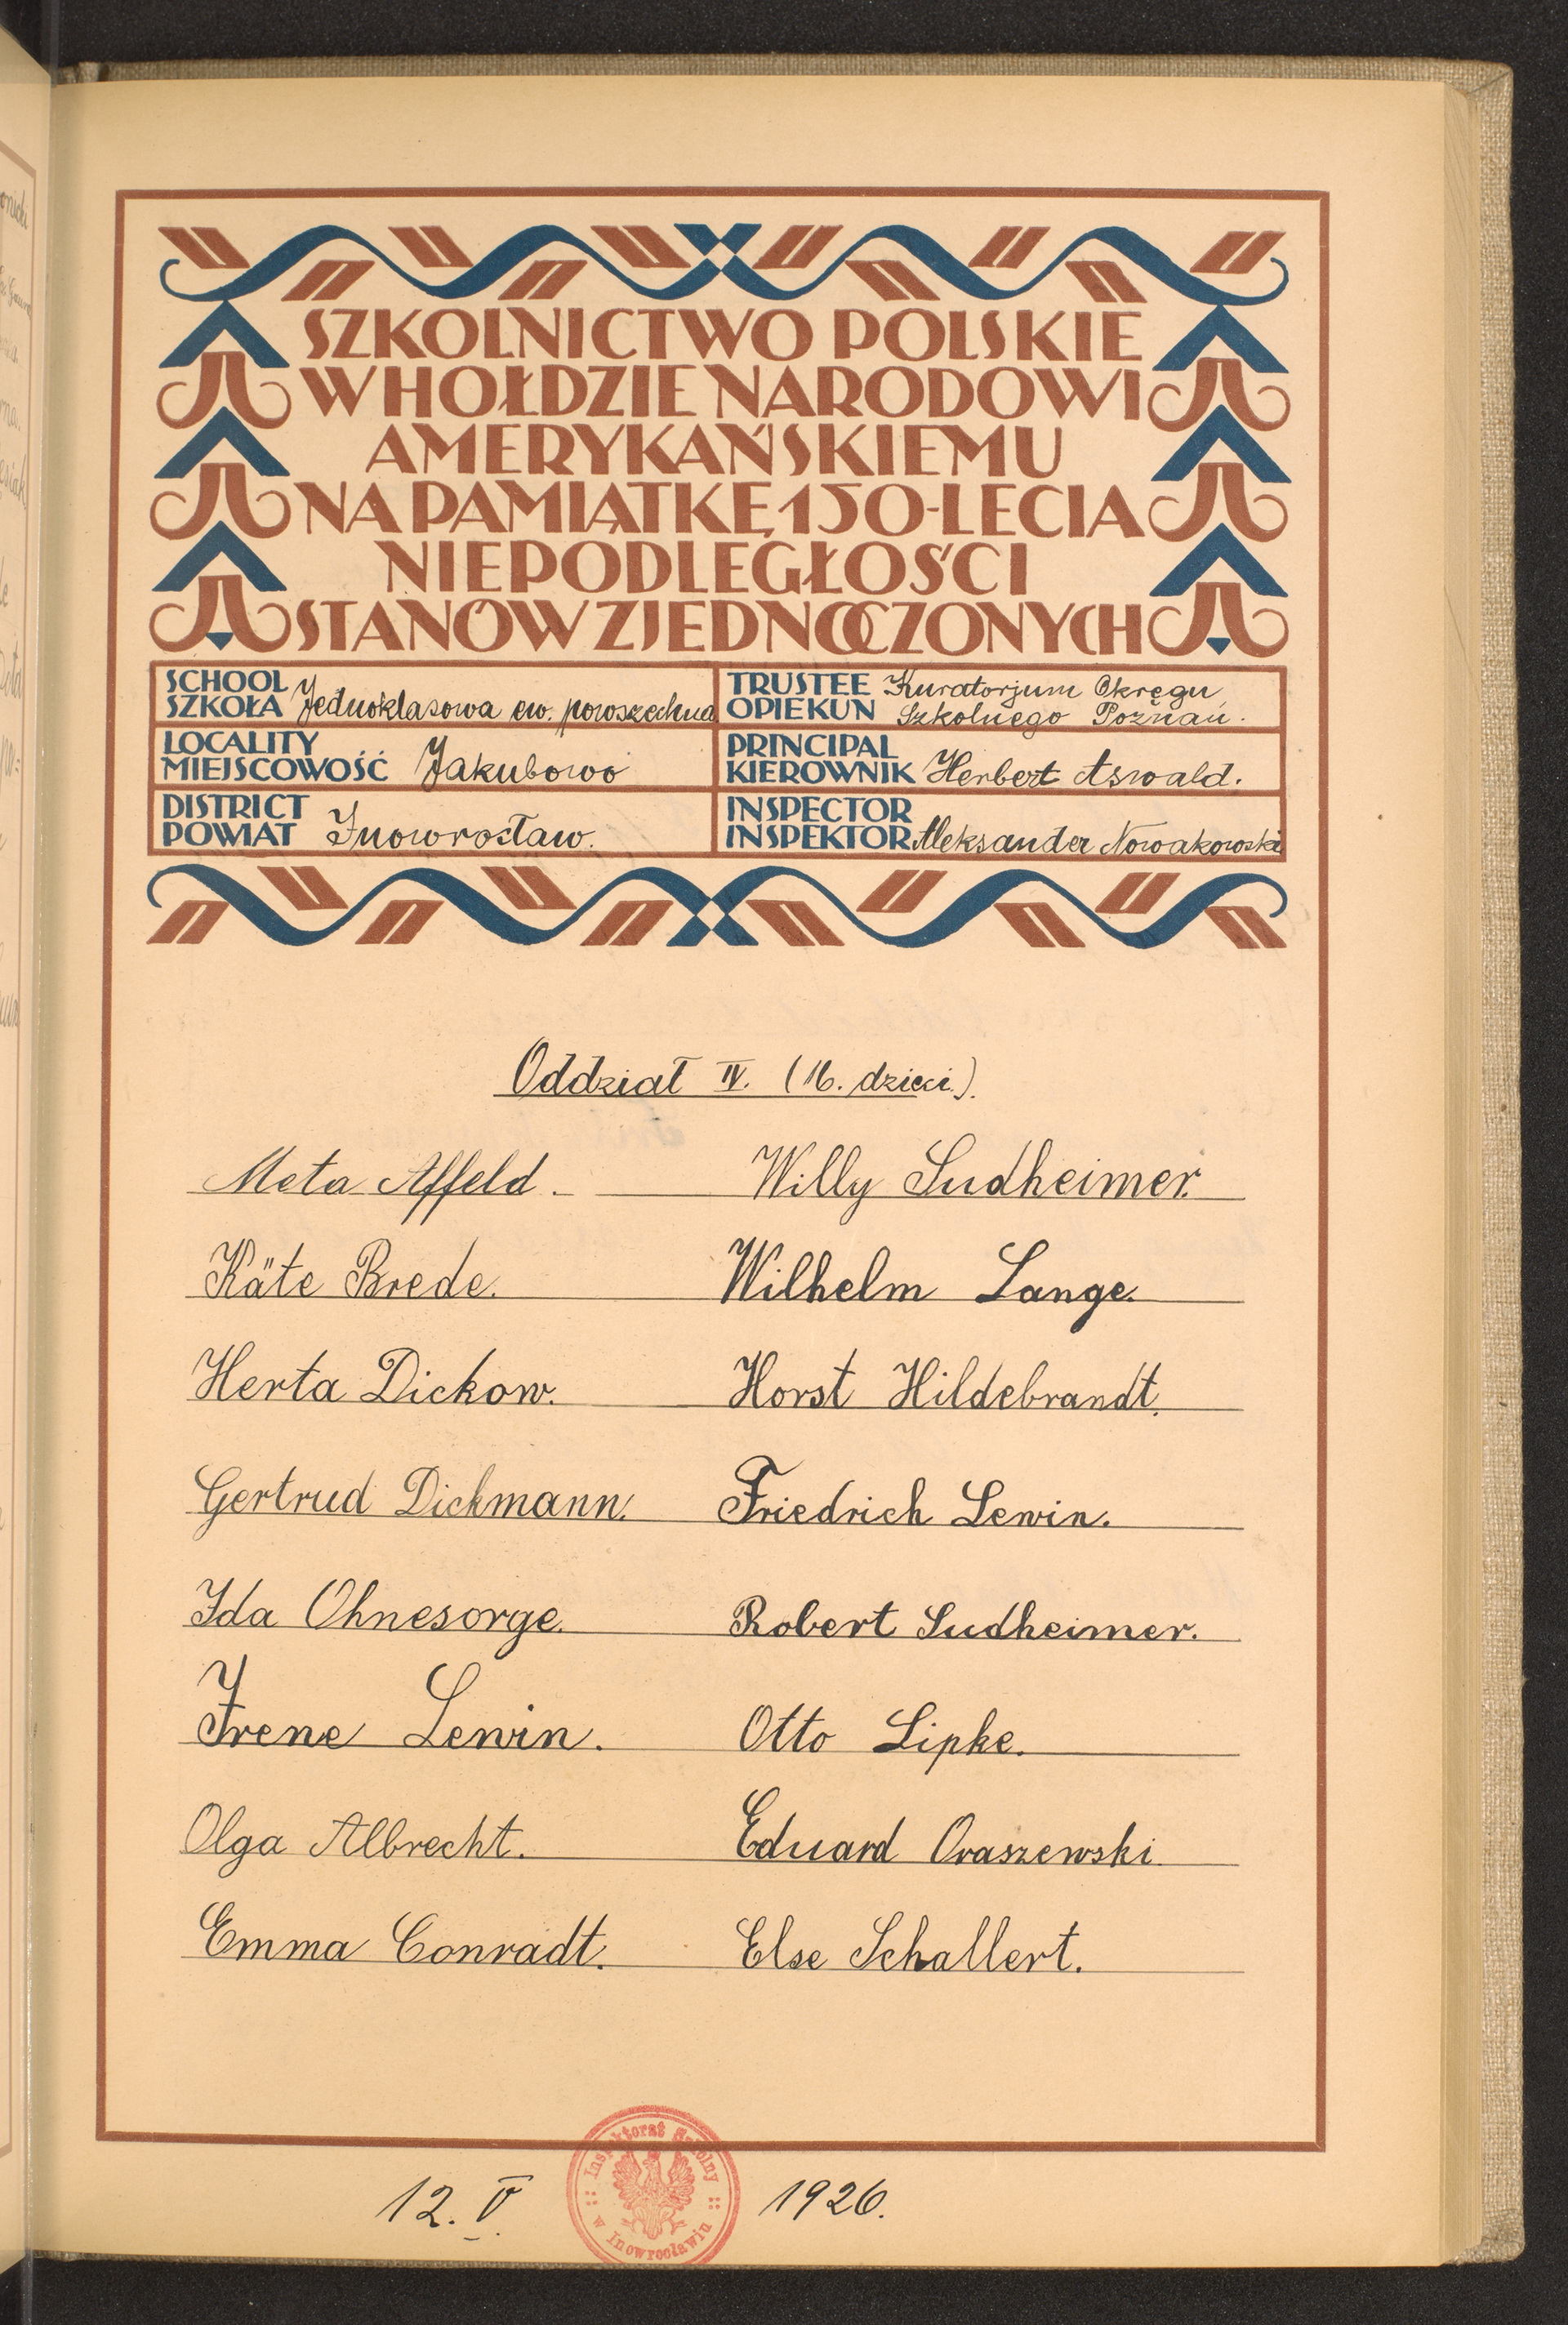 SZKOLNICTWO POLSKIE
W HOŁDZIE NARODOWI
AMERYKAŃSKIEMU
NA PAMIĄTKĘ 150-LECIA
NIEPODLEGŁOŚCI
STANÓW ZJEDNOCZONYCH
SCHOOL
SZKOŁA Jednoklasowa ew. powszechna
TRUSTEE Kuratorjum Okręgu
OPIEKUN Szkolnego Poznań.
LOCALITY
MIEJSCOWOŚĆ Jakubowo
PRINCIPAL
KIEROWNIK Herbert Aswald.
DISTRICT
POWIAT Inowrocław.
INSPECTOR
INSPEKTOR Aleksander Nowakowski
Oddział IV. (16. dzieci.)
Meta Affeld. Willy Sudheimer.
Käte Brede. Wilhelm Lange.
Herta Dickow. Horst Hildebrandt.
Gertrud Dickmann. Friedrich Lewin.
Ida Ohnesorge. Robert Sudheimer.
Irene Lewin. Otto Lipke.
Olga Albrecht. Eduard Oraszewski.
Emma Conradt. Else Schallert.
Inspektorat Szkolny
w Inowrocławiu
12. V. 1926.